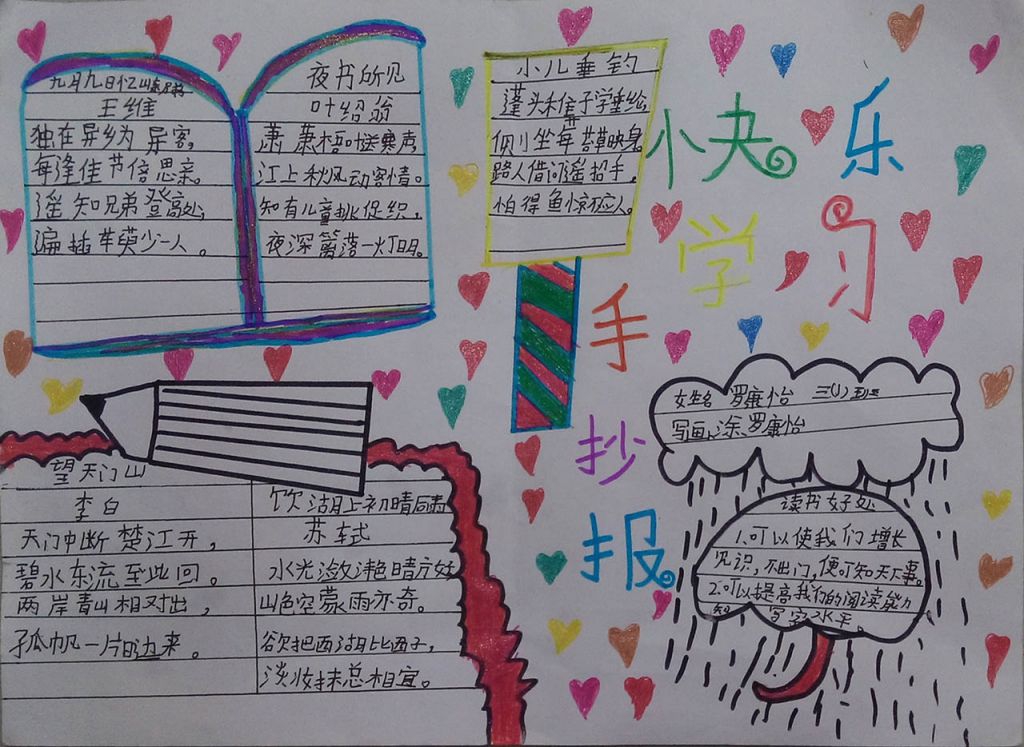 九月九日忆山东兄弟
王维
独在异乡为异客，
每逢佳节倍思亲。
遥知兄弟登高处，
遍插茱萸少一人。
夜书所见
叶绍翁
萧萧梧叶送寒声，
江上秋风动客情。
知有儿童挑促织，
夜深篱落一灯明。
小儿垂钓
蓬头稚子学垂纶，
侧坐莓苔草映身。
路人借问遥招手，
怕得鱼惊不应人。
小快乐
学习
手
抄
报
女姓名 罗康怡 三(1)班
写画、涂、罗康怡
读书好处
1.可以使我们增长
见识，不出门，便可知天下事。
2.可以提高我们的阅读能力
和写字水平。
望天门山
李白
天门中断楚江开，
碧水东流至此回。
两岸青山相对出，
孤帆一片日边来。
饮湖上初晴后雨
苏轼
水光潋滟晴方好
山色空蒙雨亦奇。
欲把西湖比西子，
淡妆抹总相宜。